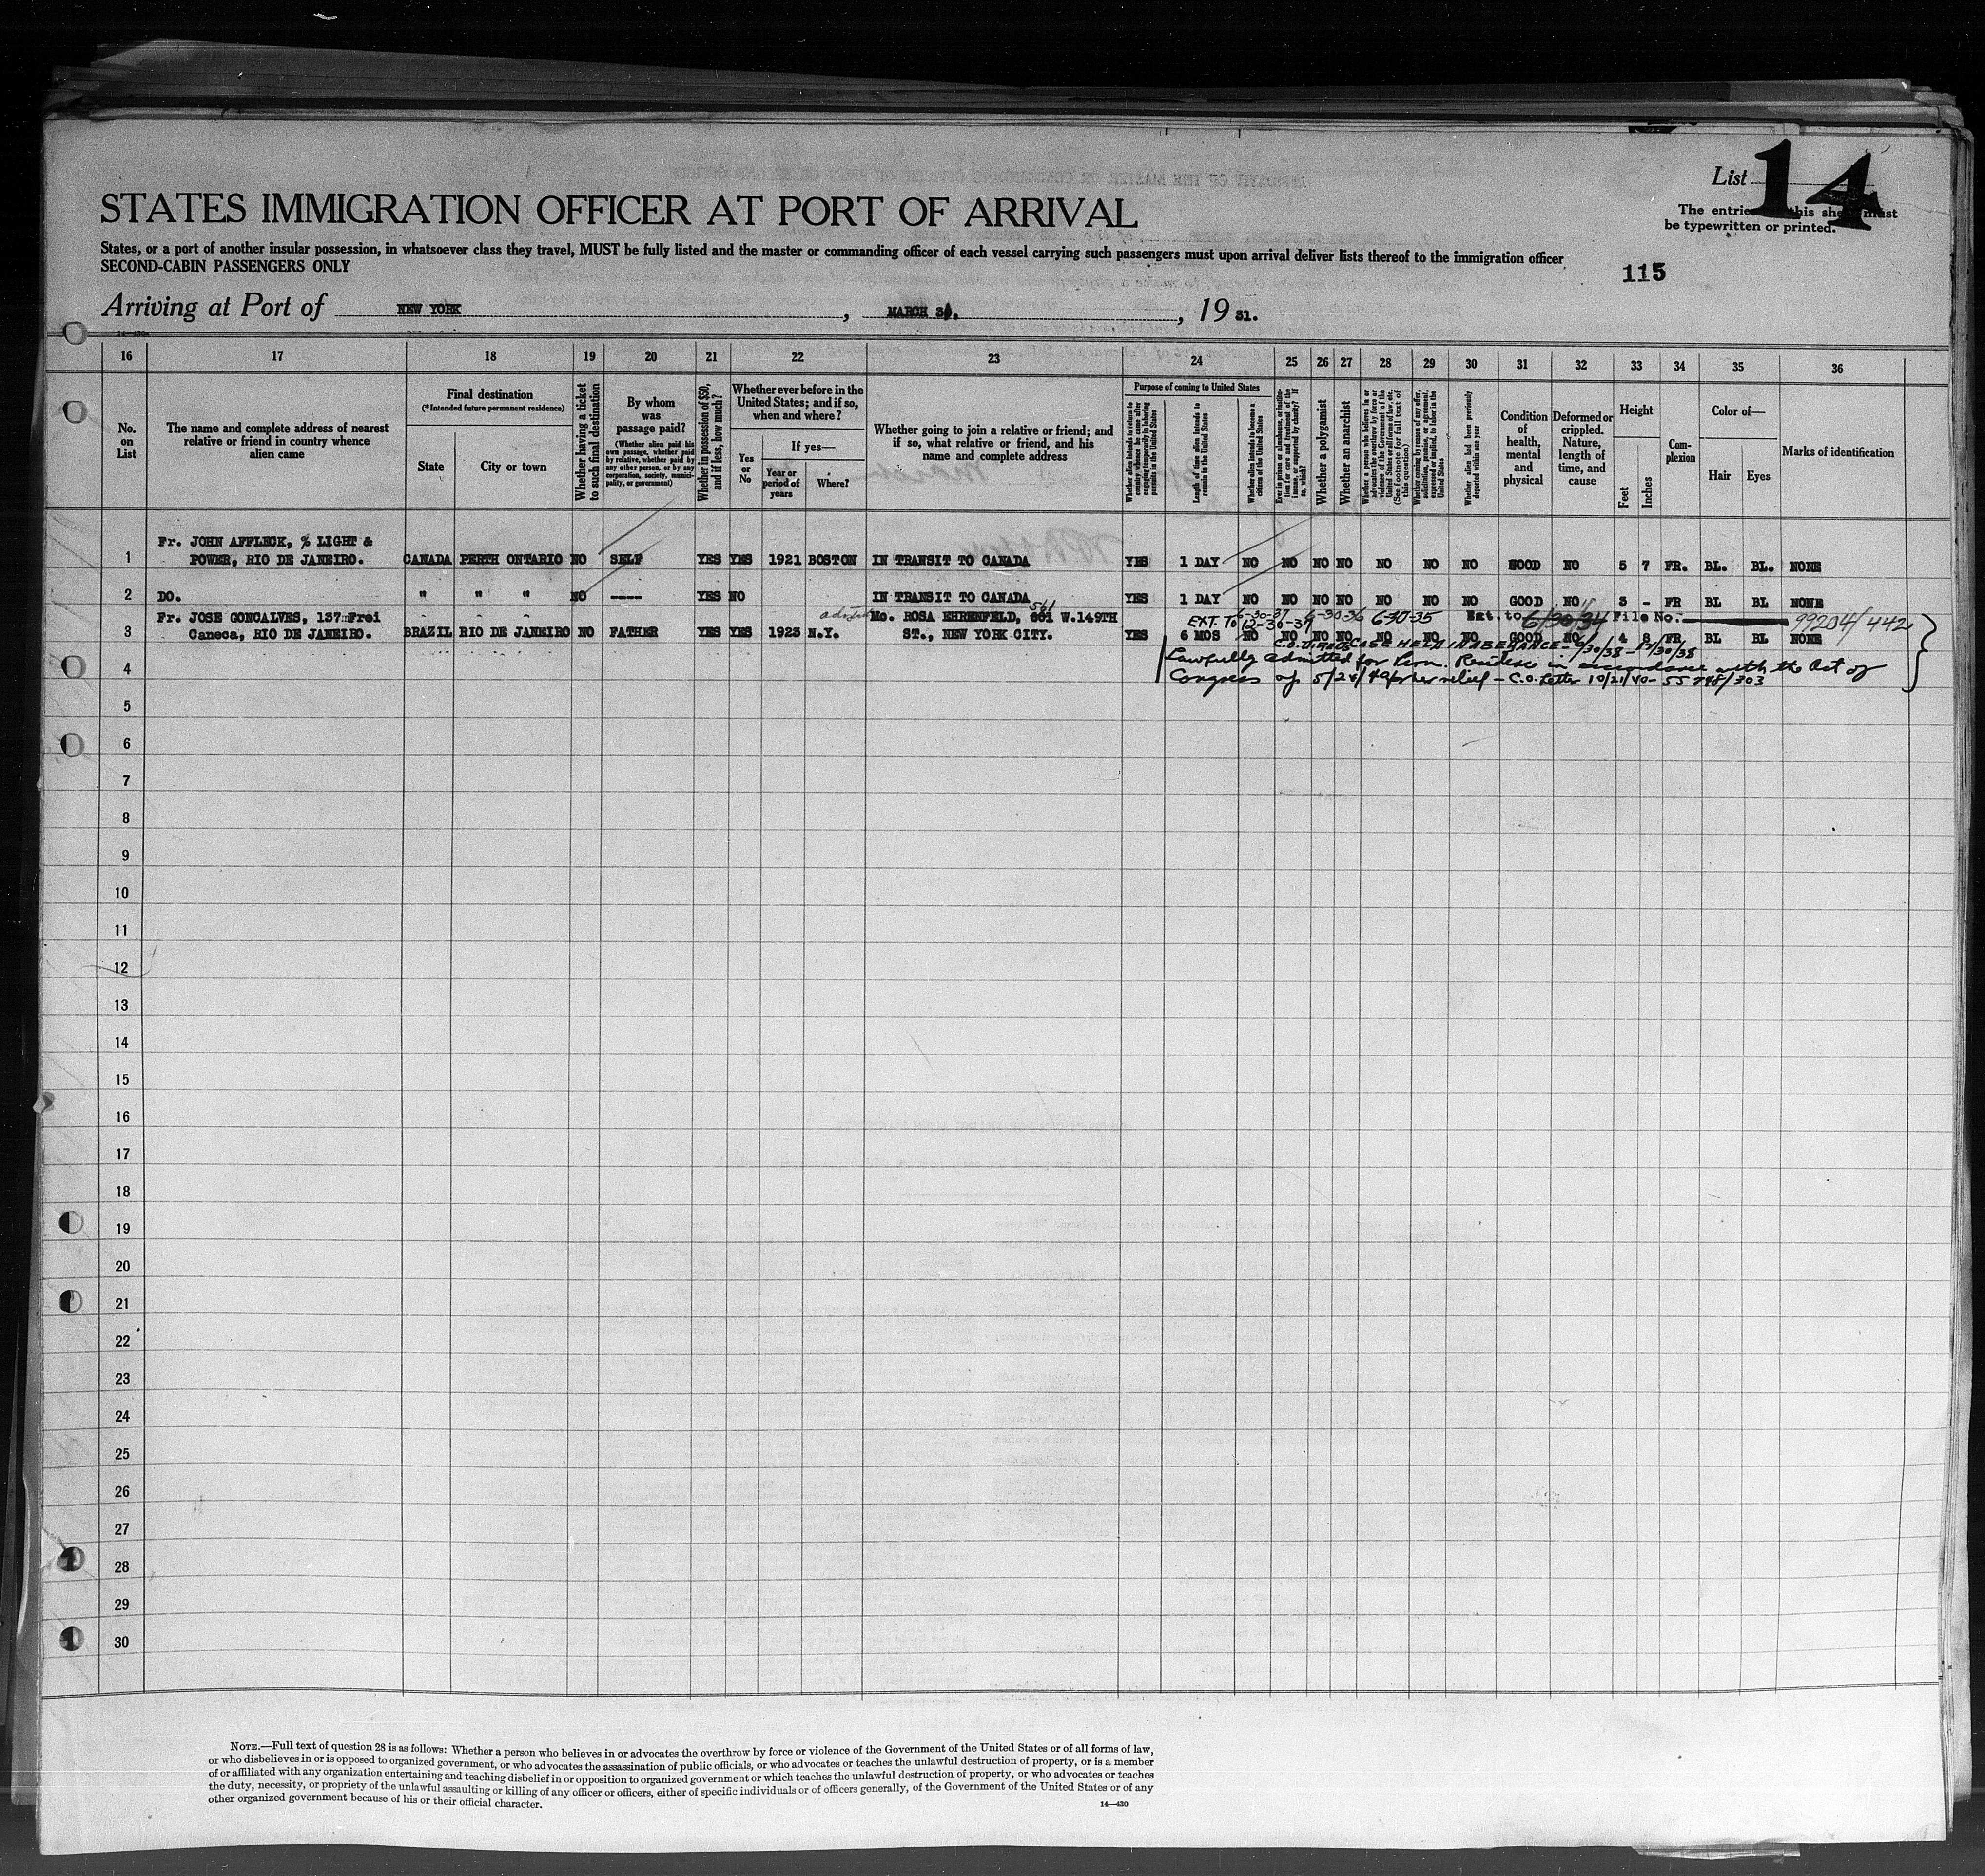 List 14
STATES IMMIGRATION OFFICER AT PORT OF ARRIVAL
The entries this sheet must
be typewritten or printed.
States, or a port of another insular possession, in whatsoever class they travel, MUST be fully listed and the master or commanding officer of each vessel carrying such passengers must upon arrival deliver lists thereof to the immigration officer
SECOND-CABIN PASSENGERS ONLY
115
Arriving at Port of NEW YORK, MARCH, 19 31.
16 17 18 19 20 21 22 23 24 25 26 27 28 29 30 31 32 33 34 35 36
No. on List
The name and complete address of nearest relative or friend in country whence alien came
Final destination
(*Intended future permanent residence)
State
City or town
Whether having a ticket to such final destination
By whom was passage paid?
(Whether alien paid his own passage, whether paid by relative, whether paid by any other person, or by any corporation, society, municipality, or government)
Whether in possession of $50, and if less, how much?
Whether ever before in the United States; and if so, when and where?
Yes or No
If yes—
Year or period of years
Where?
Whether going to join a relative or friend; and if so, what relative or friend, and his name and complete address
Purpose of coming to United States
Whether alien intends to return to country whence he came after engaging temporarily in laboring pursuits in the United States
Length of time alien intends to remain in the United States
Whether alien intends to become a citizen of the United States
Whether a polygamist
Whether an anarchist
(See footnote for full text of this question)
Whether alien had been previously deported within one year
Condition of health, mental and physical
Deformed or crippled. Nature, length of time, and cause
Height
Feet
Inches
Com-plexion
Color of—
Hair
Eyes
Marks of identification
1 Fr. JOHN AFFLECK, % LIGHT &
POWER, RIO DE JANEIRO. CANADA PERTH ONTARIO NO SELF YES YES 1921 BOSTON IN TRANSIT TO CANADA YES 1 DAY NO NO NO NO NO NO NO GOOD NO 5 7 FR. BL. BL. NONE
2 DO. " " " NO ---- YES NO IN TRANSIT TO CANADA YES 1 DAY NO NO NO NO NO NO NO GOOD NO 3 - FR BL BL NONE
Fr. JOSE GONCALVES, 137 Frei Mo. ROSA EHRENFELD, 561 W.149TH 6-30-37 6-30-36 6-30-35 Ext. to 6/30/34 File No. 99204/442
EXT. TO 12-30-39
3 Caneca, RIO DE JANEIRO. BRAZIL RIO DE JANEIRO NO FATHER YES YES 1923 N.Y. ST., NEW YORK CITY. YES 6 MOS NO NO NO NO NO NO NO GOOD NO 4 8 FR BL BL NONE
CASE HELD IN ABERANCE - 6/30/38 - 12/30/38
4 Lawfully admitted for Perm. Residence in accordance with the Act of
Congress of relief - C.O. Letter 10/21/40 - 55
5
6
7
8
9
10
11
12
13
14
15
16
17
18
19
20
21
22
23
24
25
26
27
28
29
30
NOTE.—Full text of question 28 is as follows: Whether a person who believes in or advocates the overthrow by force or violence of the Government of the United States or of all forms of law,
or who disbelieves in or is opposed to organized government, or who advocates the assassination of public officials, or who advocates or teaches the unlawful destruction of property, or is a member
of or affiliated with any organization entertaining and teaching disbelief in or opposition to organized government or which teaches the unlawful destruction of property, or who advocates or teaches
the duty, necessity, or propriety of the unlawful assaulting or killing of any officer or officers, either of specific individuals or of officers generally, of the Government of the United States or of any
other organized government because of his or their official character.
14—430